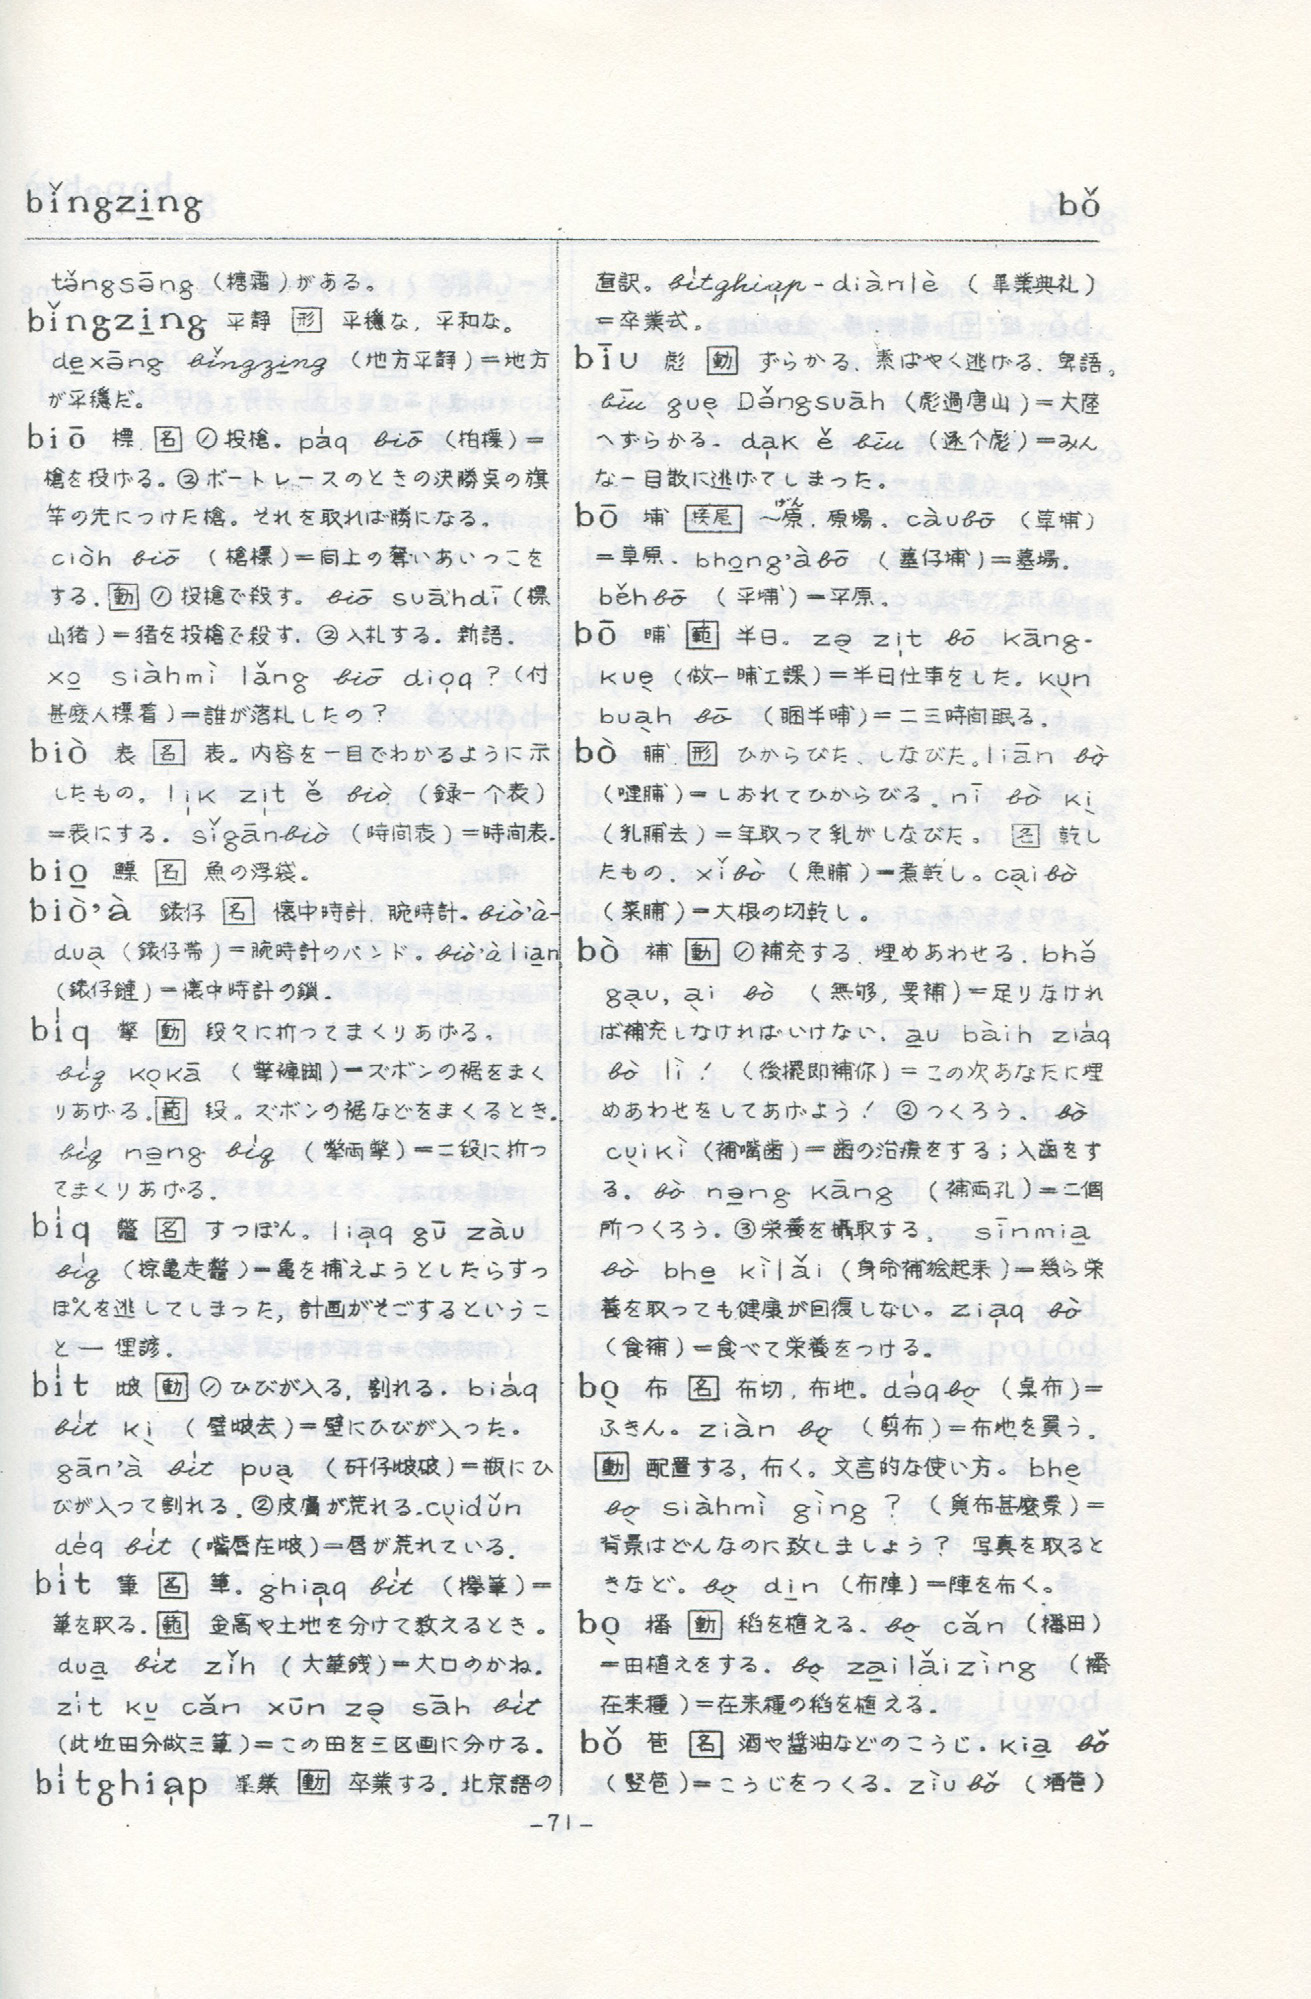 bǐngzi̱ng
bǒ
tn̆gsn̄g (糖霜)がある。
bǐngzi̱ng 平静 [形] 平穏な，平和な。
de̱xāng bǐngzi̱ng (地方平静)＝地方
が平穏だ。
biō 標 [名] ①投槍。pa̍q biō (拍標)＝
槍を投げる。②ボートレースのときの決勝点の旗
竿の先につけた槍。それを取れば勝になる。
ciòh biō (槍標)＝同上の奪いあいっこを
する．[動] ①投槍で殺す。biō suāhdī (標
山猪)＝猪を投槍で殺す。②入札する．新語．
xo̱ siàhmì lǎng biō dio̱q？(付
甚麼人標着)＝誰が落札したの？
biò 表 [名] 表。内容を一目でわかるように示
したもの。li̱k zi̱t ě biò (録一个表)
＝表にする．sǐgānbiò (時間表)＝時間表．
bio̱ 鰾 [名] 魚の浮袋。
biò'à 錶仔 [名] 懐中時計，腕時計．biò'à-
dua̱ (錶仔帯)＝腕時計のバンド。biò'à lia̱n
(錶仔鏈)＝懐中時計の鎖．
bi̍q 撆 [動] 段々に折ってまくりあげる．
bi̍q ko̱kā (撆褲脚)＝ズボンの裾をまく
りあげる．[範] 段。ズボンの裾などをまくるとき．
bi̍q nn̄g bi̍q (撆両撆)＝二段に折っ
てまくりあげる．
bi̍q 鼈 [名] すっぽん。lia̱q gū zàu
bi̍q (掠亀走鼈)＝亀を捕えようとしたらすっ
ぽんを逃してしまった，計画がそごするというこ
と一 俚諺．
bi̍t 㘷 [動] ①ひびが入る，割れる．bia̍q
bi̍t kì (壁㘷去)＝壁にひびが入った。
gān'à bi̍t pua̱ (矸仔㘷破)＝瓶にひ
びが入って割れる．②皮膚が荒れる．cu̱idǔn
dé̍q bi̍t (嘴唇在㘷)＝唇が荒れている．
bi̍t 筆 [名] 筆。ghia̱q bi̍t (攑筆)＝
筆を取る．[範] 金高や土地を分けて数えるとき。
dua̱ bi̍t zǐh (大筆銭)＝大口のかね．
zi̍t ku̱ cǎn xūn zə̱ sāh bi̍t
(此坵田分做三筆)＝この田を三区画に分ける．
bi̍tghia̱p 畢業 [動] 卒業する．北京語の
直訳。bi̍tghia̱p-diànlè (畢業典礼)
＝卒業式。
bīu 彪 [動] ずらかる，素ばやく逃げる．卑語。
bīu gue̱ Dn̆gsuāh (彪過唐山)＝大陸
へずらかる．da̱k ě bīu (逐个彪)＝みん
な一目散に逃げてしまった。
bō 埔 [接尾] 〜原，原場．càubō (草埔)
げん
＝草原．bhong'àbō (墓仔埔)＝墓場．
běhbō (平埔)＝平原．
bō 晡 [範] 半日．zə̱ zi̱t bō kāng-
kuè (做一晡工課)＝半日仕事をした．ku̱n
bua̱h bō (睏半晡)＝二三時間眠る．
bò 脯 [形] ひからびた，しなびた。liān bò
(嗹脯)＝しおれてひからびる．nī bò kì
(乳脯去)＝年取って乳がしなびた。[名] 乾し
たもの．xǐbò (魚脯)＝煮乾し。ca̱ibò
(菜脯)＝大根の切乾し。
bò 補 [動] ①補充する，埋めあわせる．bhə̌
ga̱u, a̱i bò (無够，要補)＝足りなけれ
ば補充しなければいけない．a̱u bàih zia̍q
bò lì！(後擺即補你)＝この次あなたに埋
めあわせをしてあげよう！②つくろう．bò
cu̱ikì (補嘴歯)＝歯の治療をする；入歯をす
る。bò nn̄g kāng (補両孔)＝二個
所つくろう。③栄養を摂取する．sīnmia̱
bò bhe̱ kìlǎi (身命補𣍐起来)＝幾ら栄
養を取っても健康が回復しない。zia̱q bò
(食補)＝食べて栄養をつける。
bo̱ 布 [名] 布切，布地。də̍qbo̱ (桌布)＝
ふきん。ziàn bo̱ (剪布)＝布地を買う．
[動] 配置する，布く。文言的な使い方。bhe̱
bo̱ siàhmì gìng？(貝布甚麼景)＝
背景はどんなのに致しましょう？ 写真を取ると
きなど。bo̱ di̱n (布陣)＝陣を布く。
bo̱ 播 [動] 稲を植える．bo̱ cǎn (播田)
＝田植えをする．bo̱ za̱ilǎizìng (播
在来種)＝在来種の稲を植える．
bǒ 菢 [名] 酒や醤油などのこうじ．kia̱ bǒ
(竪菢)＝こうじをつくる．zìubǒ (酒菢)
—71—